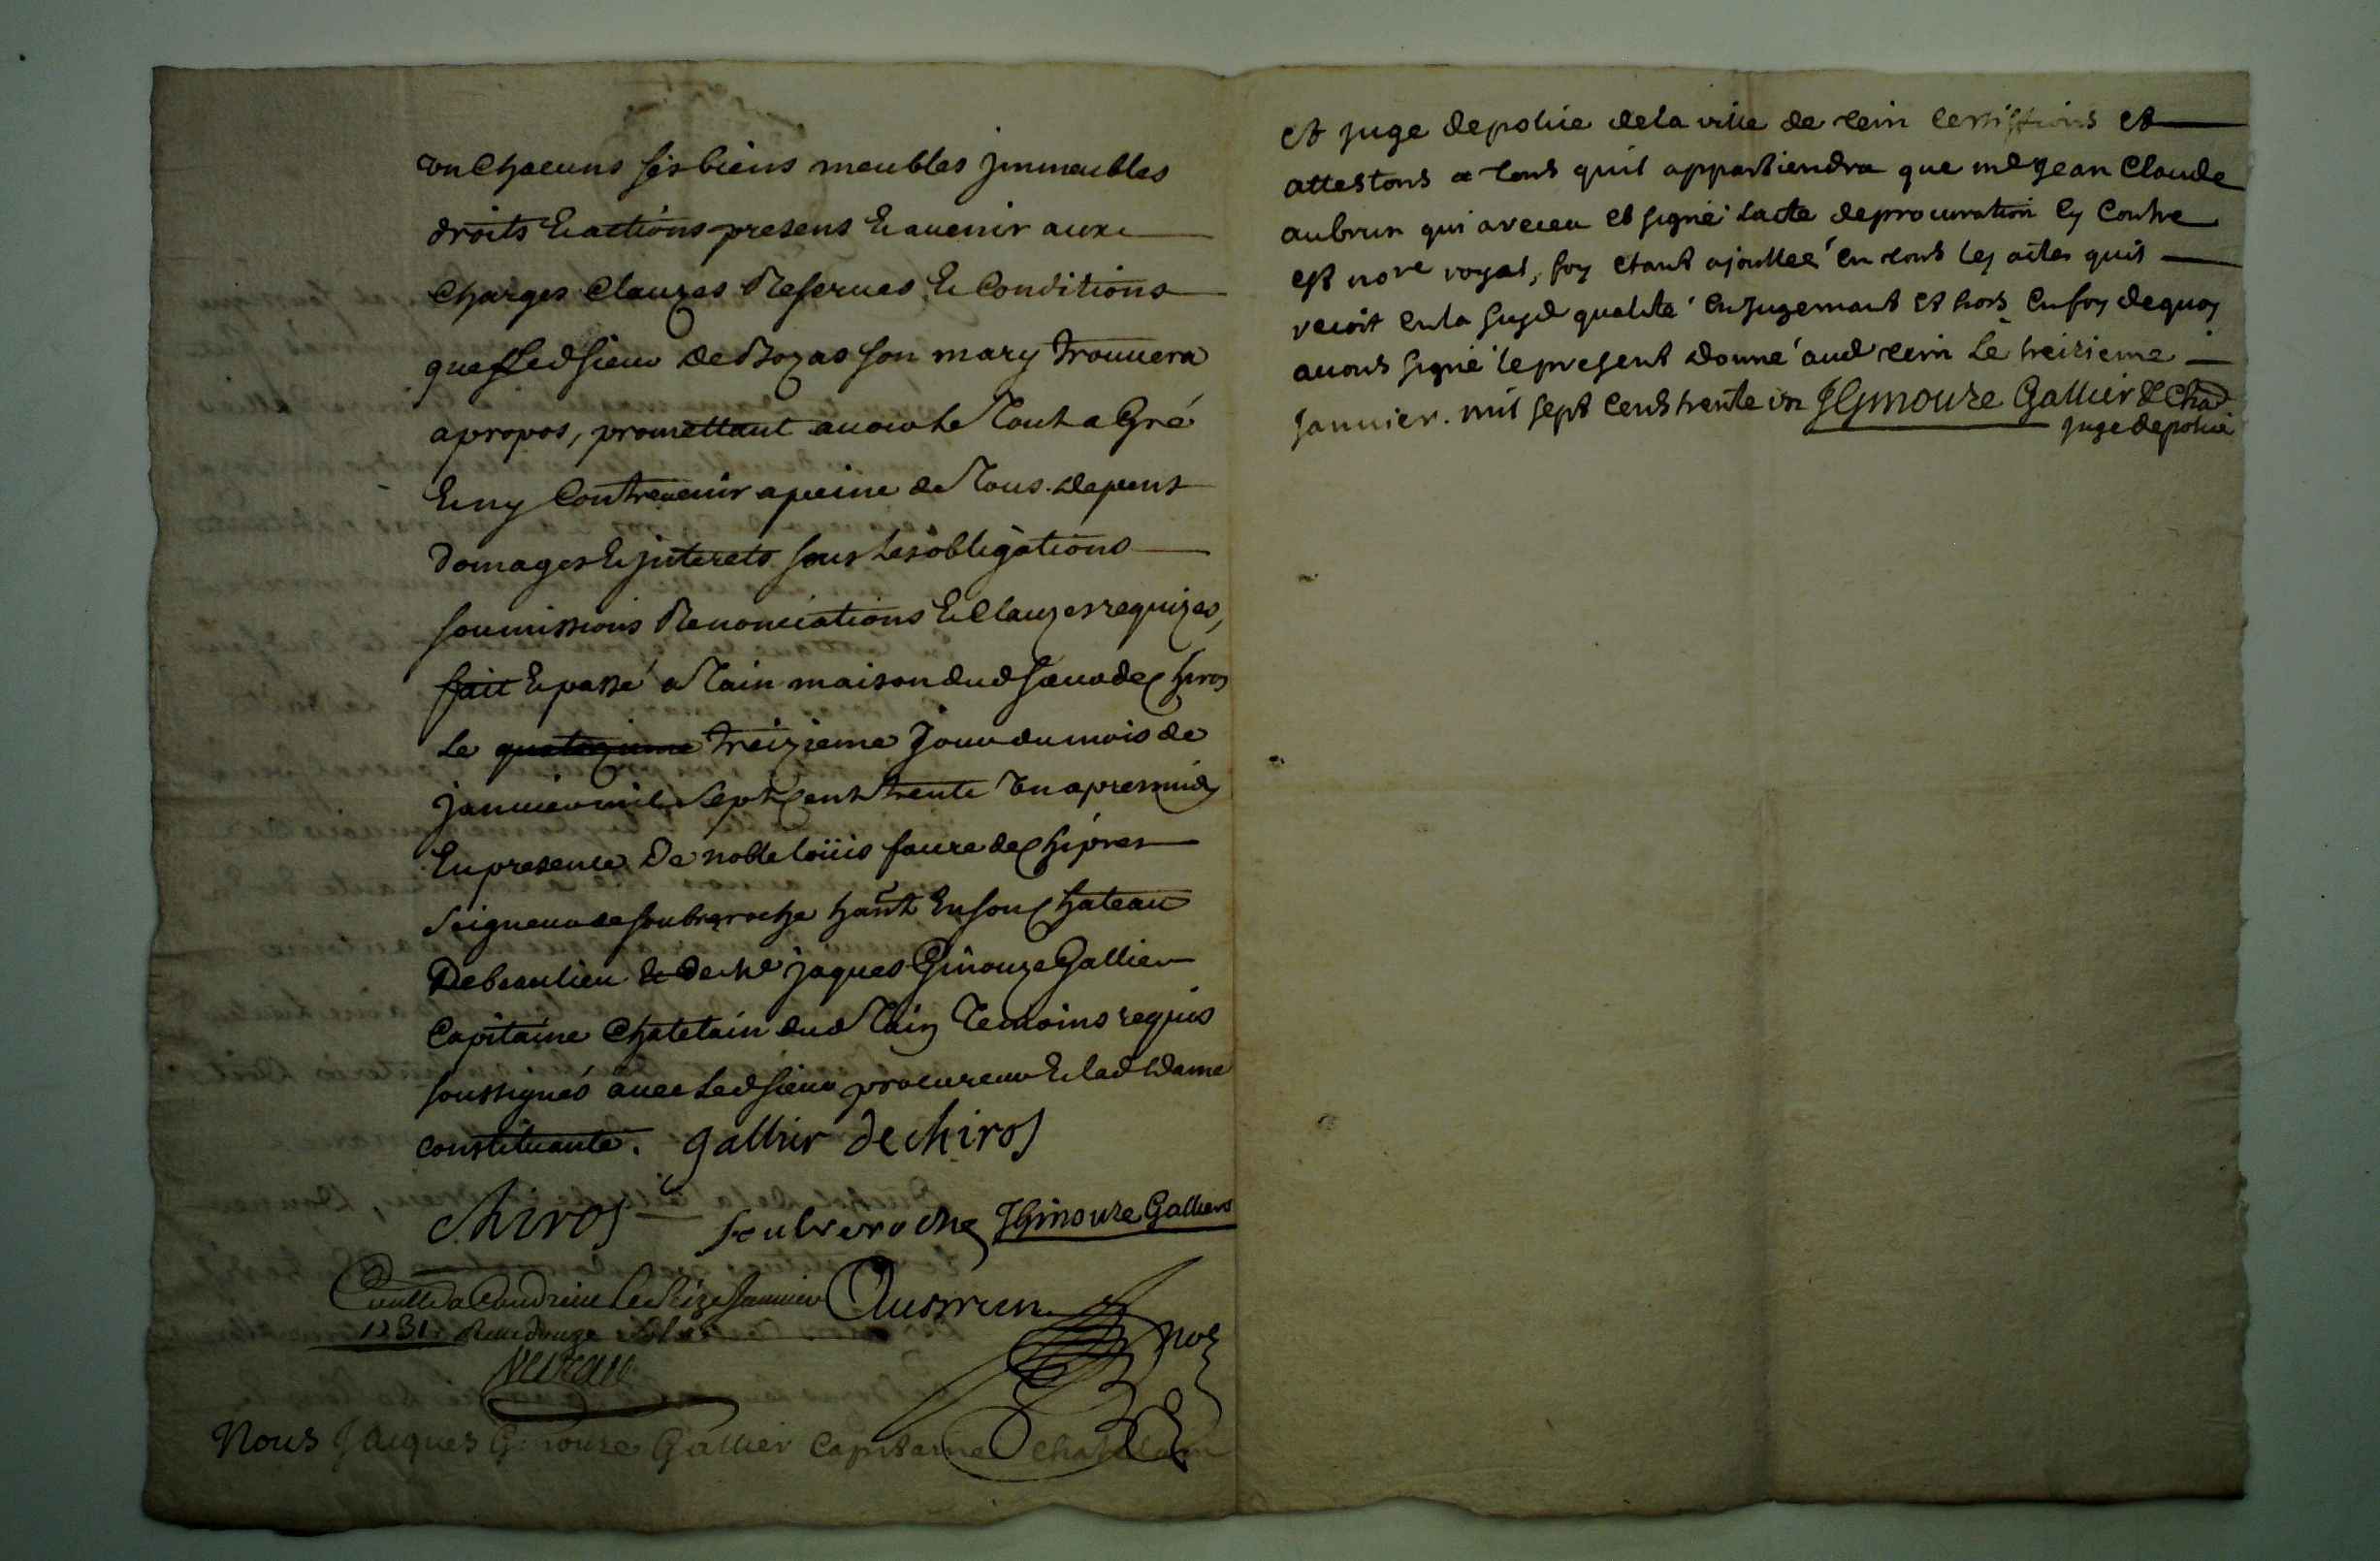 un Chacuns ses biens meubles jmmeubles
droits Et actions presens Et auenir aux
Charges Clauzes Reserues Et Conditions
que Led sieur de Bozas son mary trouuera
apropos, promettant auoir le Tout a Gré
Et ny Contreuenir apeine de Tous depens
domages Et jnterets sous Les obligations
soumissions Renonciations Et Clauzes requizes,
fait Et passé a Tain maison dud sieur de Chiros
Le quatorzieme treizieme Jour du mois de
januier mil Sept Cent trente Un apres midy
En presence De noble loüis faure de Chipres
Seigneur de soubreroche hant En son Chateau
De beaulieu Et de Me jaques Ginouze Gallier
Capitaine Chatelain dud Tain Temoins requis
soussignés auec Led sieur procureur Et lad Dame
constituante. gallier de chiros
chiros soubreroche JGinouze Gallier
Conllé a Condrieu Le Seize Januier Aubrun
1731. Receu douze sols noe
Nous Jacques Ginouze Gallier Capitaine Chatelain
et juge de police de la ville de tein certiffions et
attestons a tous quil appartiendra que me jean Claude
aubrun qui a receu et signé lacte de procuration cy contre
est nore royal, foy etant ajouttée en tous les actes quil
recoit en la susd qualité en jugement et hors en foy de quoy
auons signé le present donné aud tein le treizieme
januier. mil sept cens trente un JGinouze Gallier & Chad
juge de police